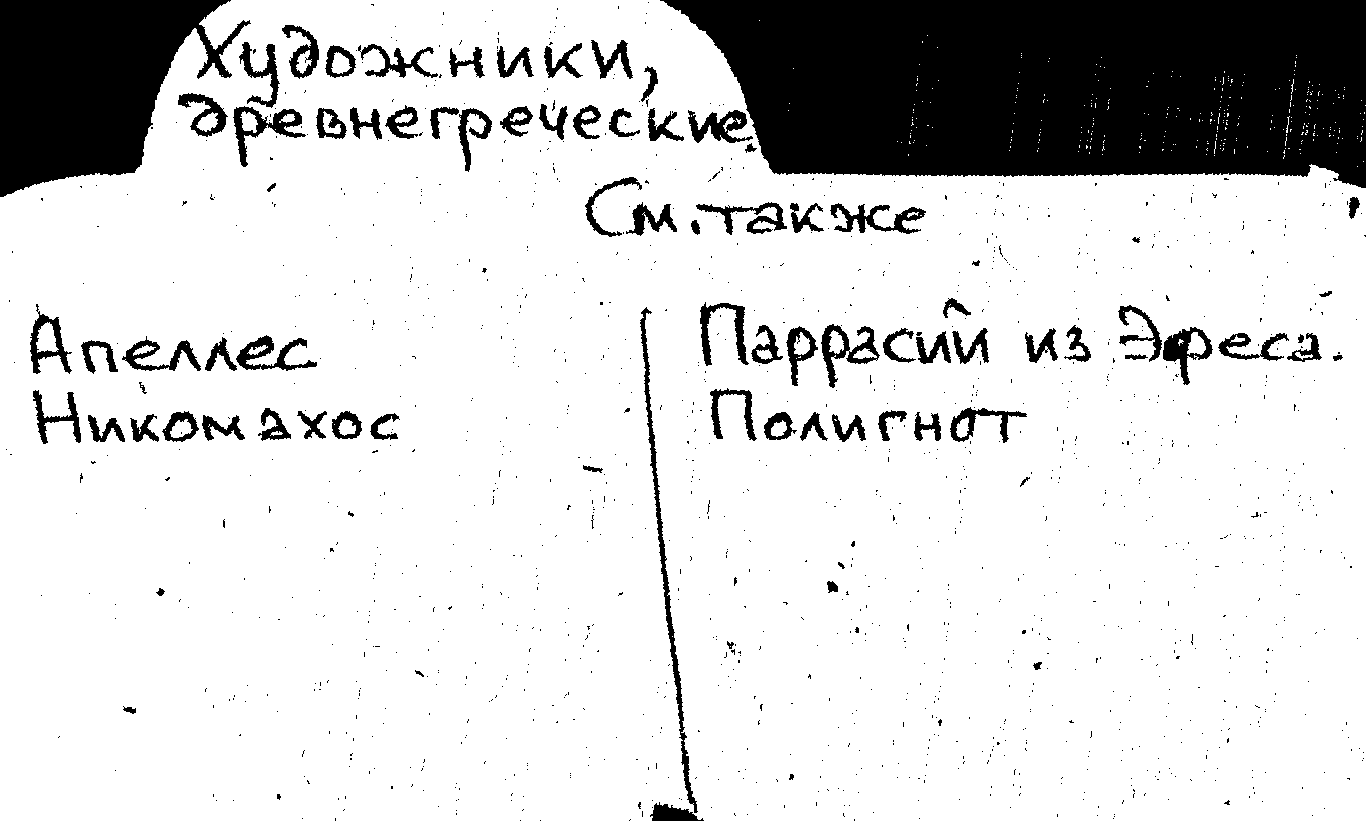 Художники,
древнегреческие
См. также
Апеллес
Никомахос
Паррасий из Эфеса.
Полигнот